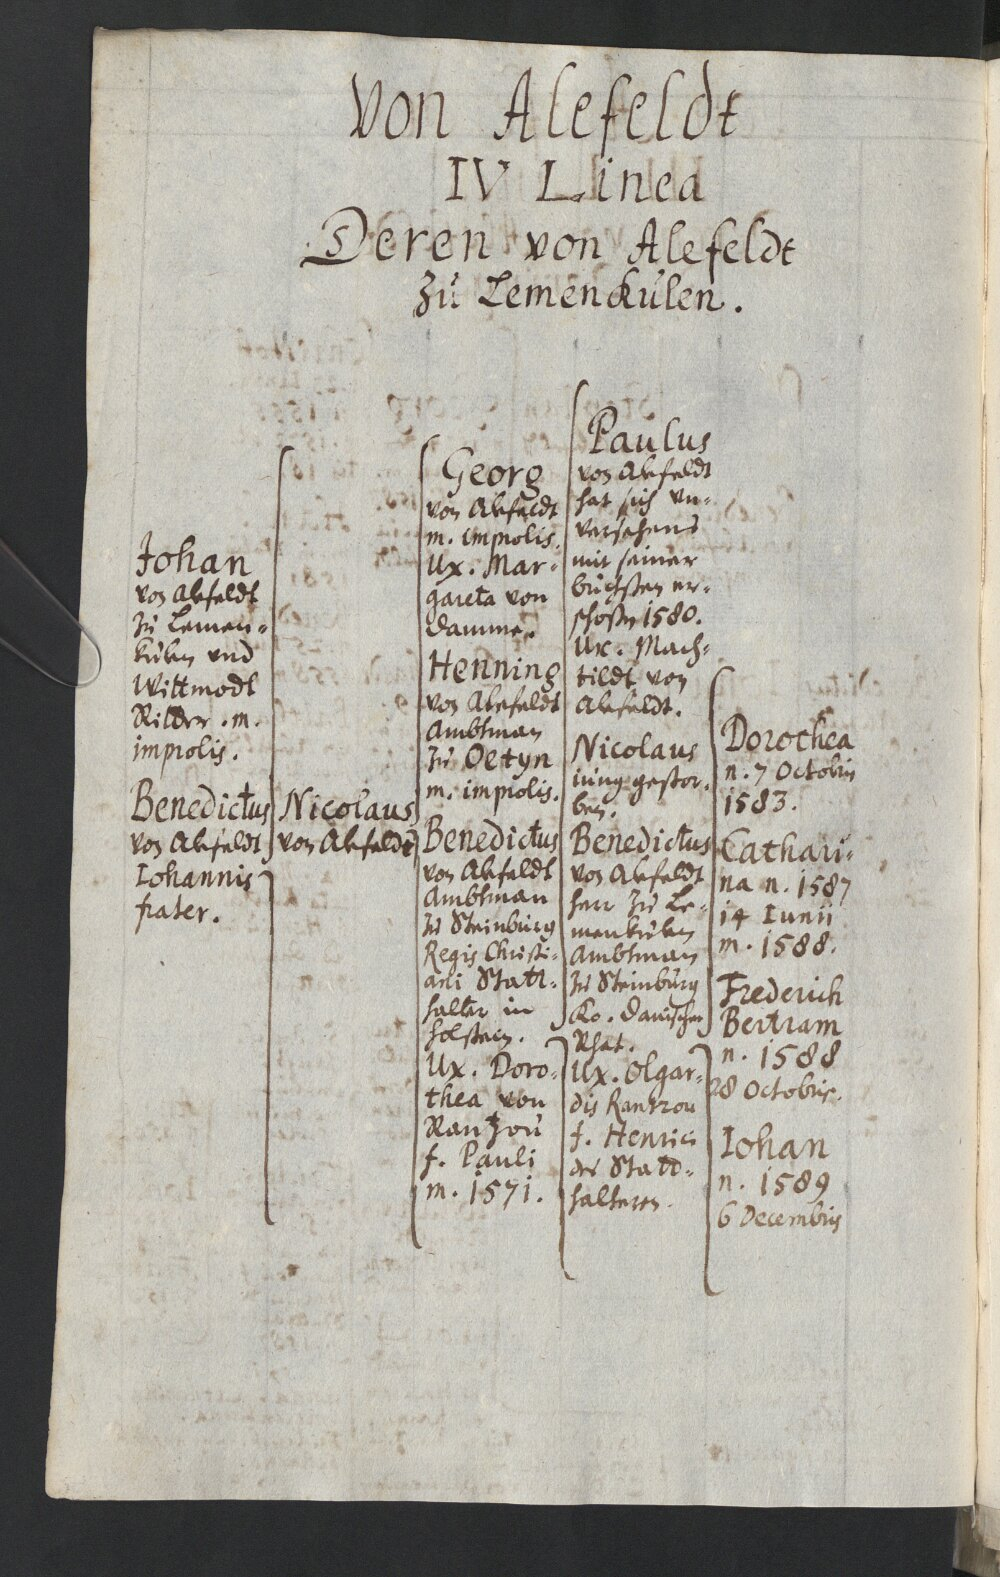 Von Alefeldt
IV Linea
Deren von Alefeldt
zu Lemenkulen.
Johan
von Alefeldt
zu Lemen-
kulen und
Wittmodt
Ritter. m.
improlis.
Benedictus
von Alefeldt
Iohannis
frater.
Nicolaus
von Alefeldt
Georg
von Alefeldt
m. improlis.
Ux. Mar-
gareta von
Damme.
Henning
von Alefeldt
Ambtman
zu Oetyn
m. improlis.
Benedictus
von Alefeldt
Ambtman
zu Steinburg
Regis Christi-
ani Statt-
halter in
Holstein.
Ux. Doro-
thea von
Rantzou
f. Pauli
m. 1571.
Paulus
von Alefeldt
hat sich un-
versehens
mit seiner
buchsten er-
schossn 1580.
Ux. Mach-
tildt von
Alefeldt.
Nicolaus
iung gestor-
ben.
Benedictus
von Alefeldt
herr zu Le-
menkulen
Ambtman
zu Steinburg
Ko. Danischer
Rhat.
Ux. Olgar-
dis Rantzou
f. Henrici
des Statt-
halters.
Dorothea
n. 7 Octobris
1583.
Cathari-
na n. 1587
14 Iunii
m. 1588.
Frederich
Bertram
n. 1588
28 Octobris.
Iohan
n. 1589
6 Decembris